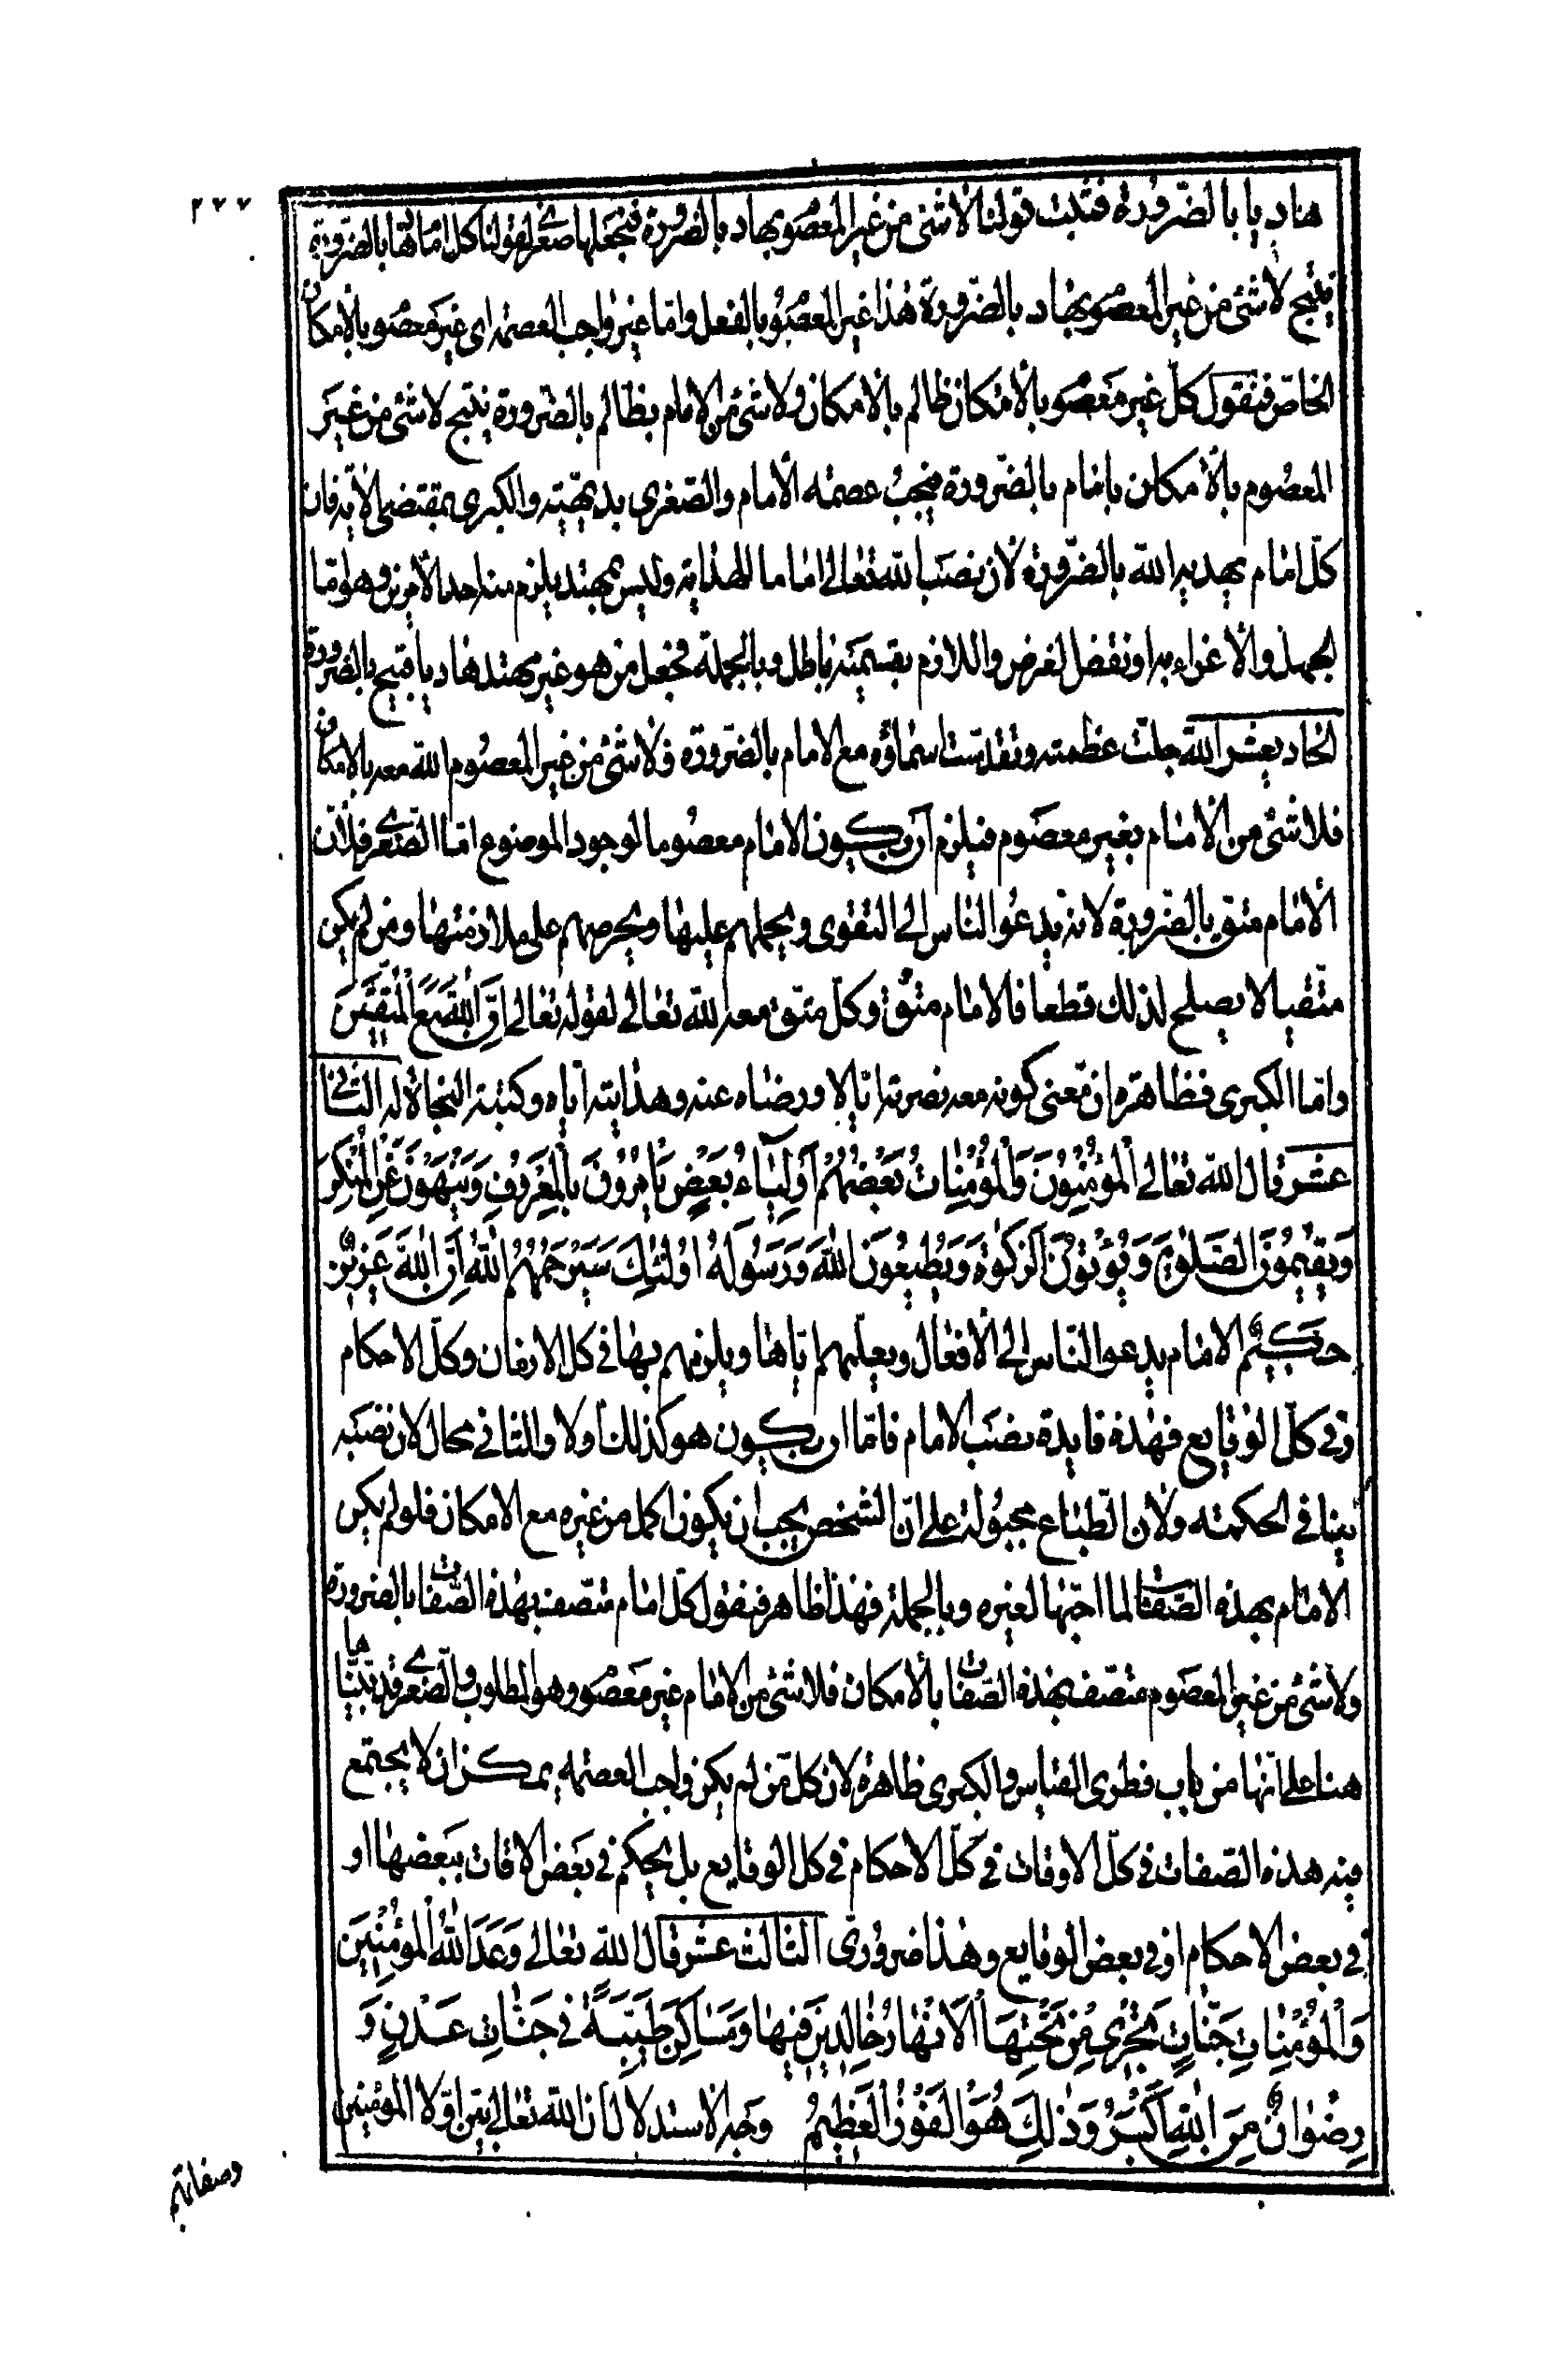 ٢٧٧
هاديا بالضرورة فثبت قولنا لا شئ من غير المعصوم بهاد بالضرورة فنجعلها صغرى لقولنا كل امام هاد بالضرورة
ينتج لا شئ من غير المعصوم بهاد بالضرورة هذا غير المعصوم بالفعل وامّا غير واجب العصمة اى غير معصوم بالامكان
الخاصّ فنقول كلّ غير معصوم بالامكان ظالم بالامكان ولا شئ من الامام بظالم بالضرورة ينتج لا شئ من غير
المعصوم بالامكان بامام بالضرورة فيجب عصمة الامام والصّغرى بديهيّة والكبرى بمقتضى الاية فان
كلّ امام يهديه الله بالضّرورة لان نصب الله تعالى اماما للهداية وليس بمهتد يلزم منه احد الامرين وهو امّا
الجهل والاغراء به او نقض الغرض واللازم بقسميه باطل وبالجملة فجعل من هو غير مهتد هاديا قبيح بالضرورة
الحاديعشر الله جلت عظمته وتقدّست اسماؤه مع الامام بالضرورة ولا شئ من غير المعصوم الله معه بالامكان
فلا شئ من الامام بغير معصوم فيلزم ان يكون الامام معصوما لوجود الموضوع امّا الصّغرى فلانّ
الامام متّق بالضرورة لانه يدعو الناس الى التقوى ويحملهم عليها ويحرصهم على ملازمتها ومن لم يكن
متّقيا لا يصلح لذلك قطعا فالامام متّق وكلّ متّق معه الله تعالى لقوله تعالى اِنَّ اللهَ مَعَ الْمُتَّقِينَ
وامّا الكبرى فظاهرة اذ معنى كونه معه نصرته ايّاه ورضاه عنه وهدايته ايّاه وكتبته النجاة له الثانى
عشر قال الله تعالى اَلْمُؤْمِنُونَ وَالْمُؤْمِنَاتُ بَعْضُهُمْ اَوْلِيَاءُ بَعْضٍ يَأمُرُونَ بِالْمَعْرُوفِ وَيَنْهَوْنَ عَنِ الْمُنْكَرِ
وَيُقِيمُونَ الصَّلٰوةَ وَيُؤْتُونَ الزَّكٰوةَ وَيُطِيعُونَ اللهَ وَرَسُولَهُ اُولٰئِكَ سَيَرْحَمُهُمُ اللهُ اِنَّ اللهَ عَزِيزٌ
حَكِيمٌ الامام يدعو النّاس الى الافعال ويعلّمهم ايّاها ويلزمهم بها فى كل الازمان وكلّ الاحكام
وفى كلّ الوقايع فهذه فايدة نصب الامام فامّا ان يكون هو كذلك اولا والثانى محال لان نصبه
ينافى الحكمة ولان الطّباع مجبولة على انّ الشخص يجب ان يكون اكمل من غيره مع الامكان فلو لم يكن
الامام بهذه الصّفات لما احبّها لغيره وبالجملة فهذا ظاهر فنقول كلّ امام متّصف بهذه الصّفات بالضرورة
ولا شئ من غير المعصوم متّصف بهذه الصّفات بالامكان فلا شئ من الامام غير معصوم وهو المطلوب والصّغرى قد بيّناها
هنا على انّها من باب فطرى القياس والكبرى ظاهرة لان كلّ من لم يكن واجب العصمة يمكن ان لا يجتمع
فيه هذه الصّفات فى كلّ الاوقات فى كلّ الاحكام فى كل الوقايع بل يحكم فى بعض الاوقات ببعضها او
فى بعض الاحكام او فى بعض الوقايع وهذا ضرورىّ الثالث عشر قال الله تعالى وَعَدَ اللهُ الْمُؤْمِنِينَ
وَالْمُؤْمِنَاتِ جَنَّاتٍ تَجْرِى مِنْ تَحْتِهَا الْاَنْهَارُ خَالِدِينَ فِيهَا وَمَسَاكِنَ طَيِّبَةً فِى جَنَّاتِ عَدْنٍ وَ
رِضْوَانٌ مِنَ اللهِ اَكْبَرُ وَذٰلِكَ هُوَ الْفَوْزُ الْعَظِيمُ وجه الاستدلال ان الله تعالى بيّن اوّلا المؤمنين
وصفاتهم